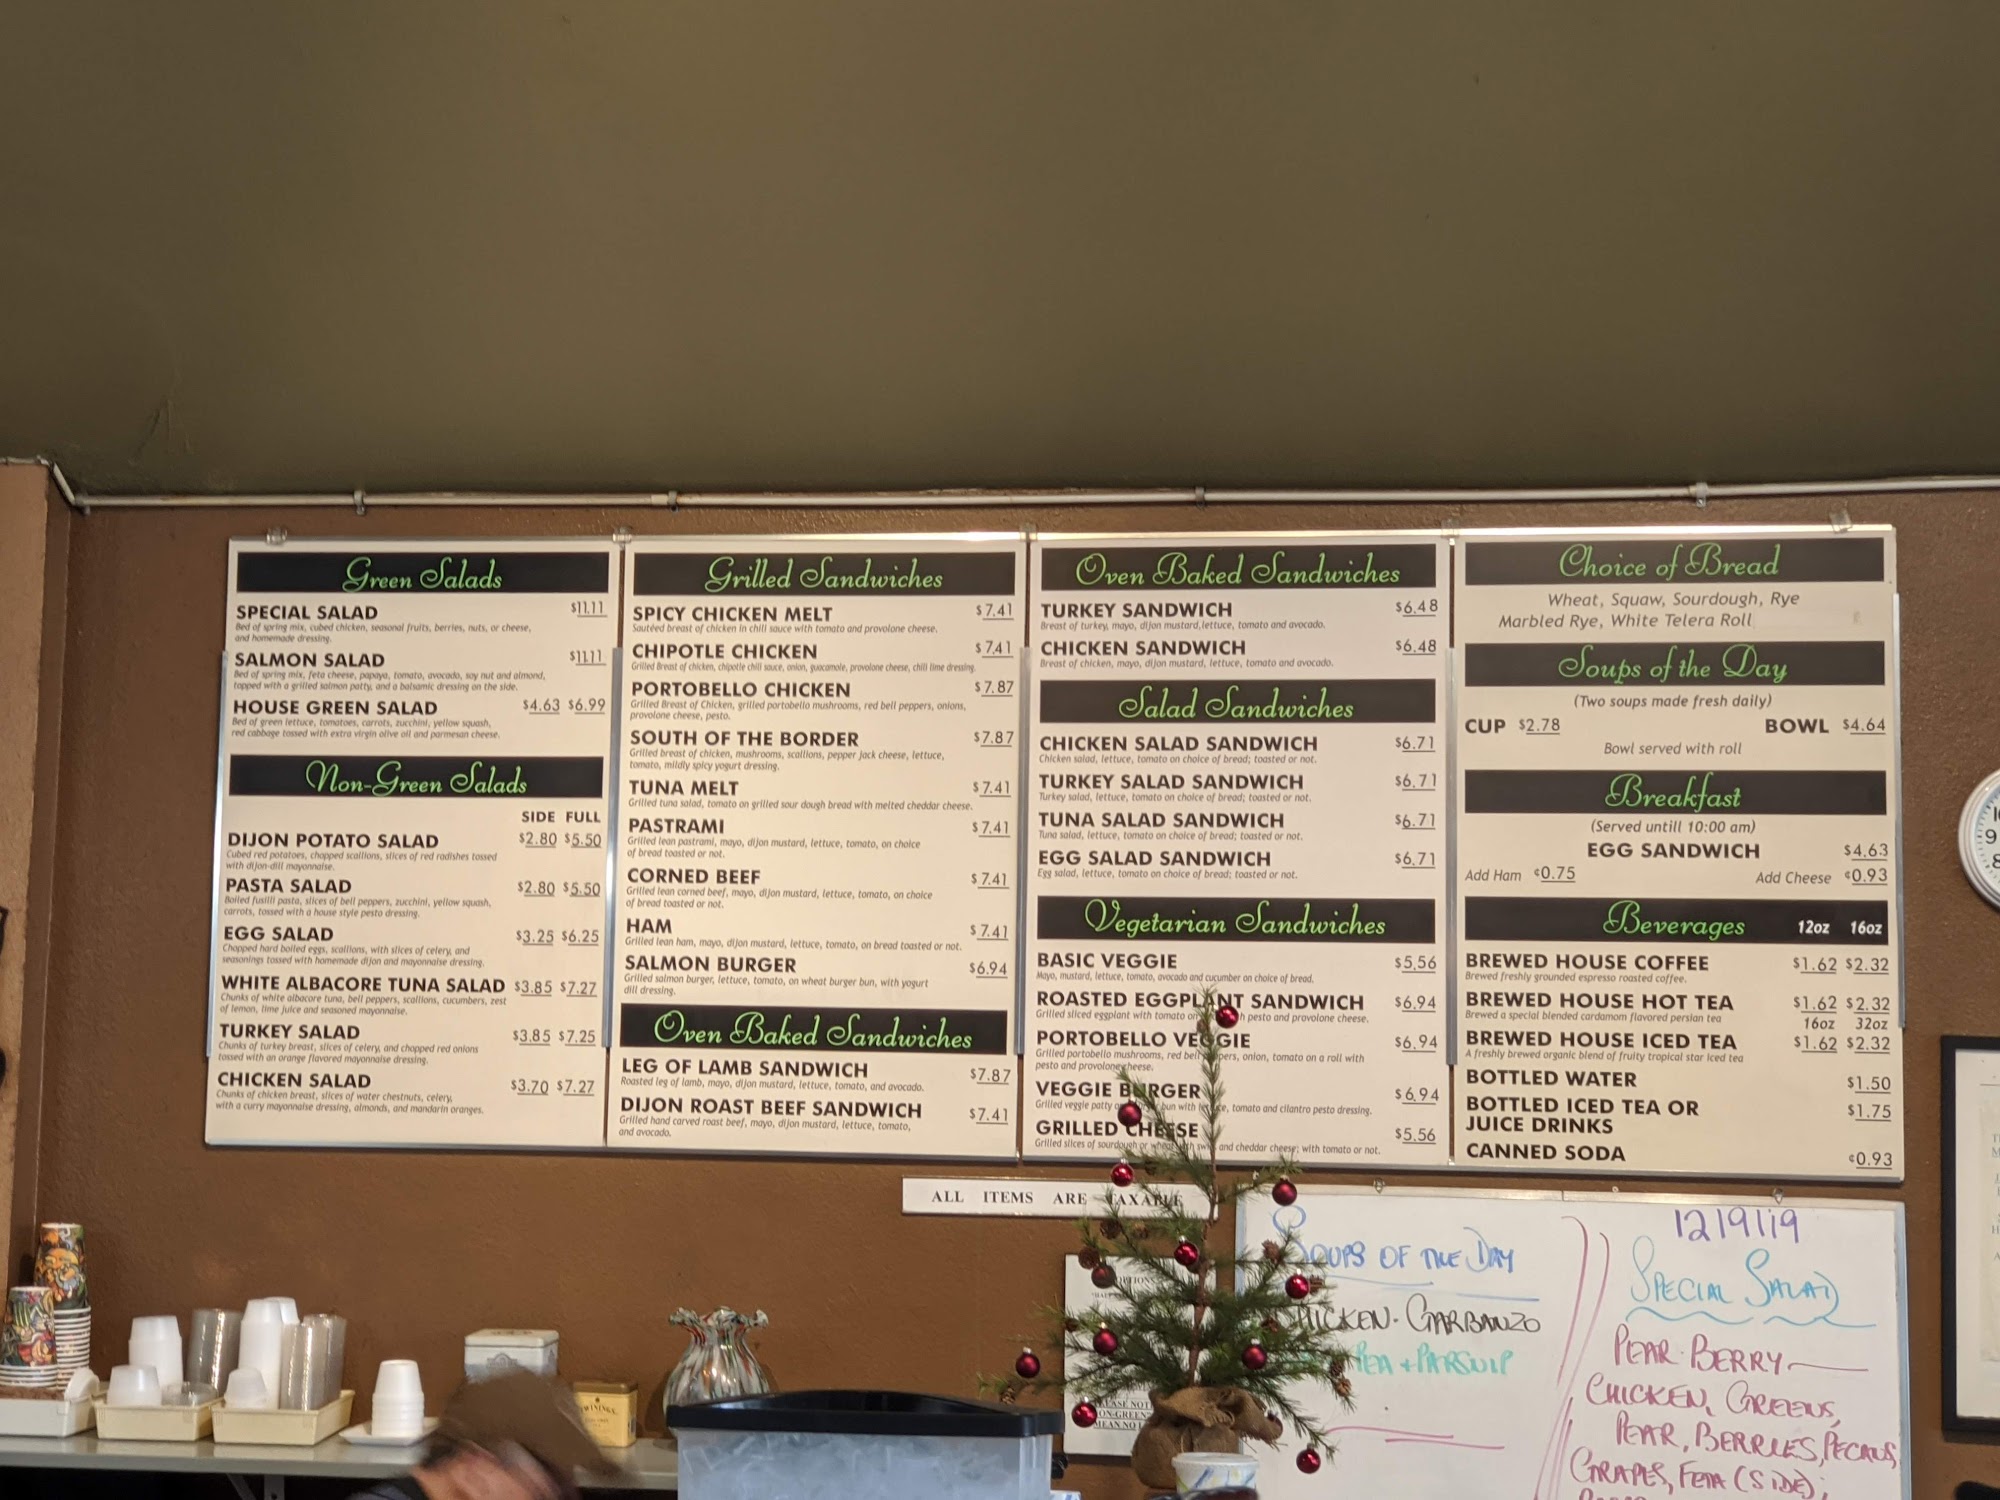 Green Salads
SPECIAL SALAD $11.11
Bed of spring mix, cubed chicken, seasonal fruits, berries, nuts, or cheese,
and homemade dressing.
SALMON SALAD $11.11
Bed of spring mix, feta cheese, papaya, tomato, avocado, soy nut and almond,
topped with a grilled salmon patty, and a balsamic dressing on the side.
HOUSE GREEN SALAD $4.63 $6.99
Bed of green lettuce, tomatoes, carrots, zucchini, yellow squash,
red cabbage tossed with extra virgin olive oil and parmesan cheese.
Non-Green Salads
SIDE FULL
DIJON POTATO SALAD $2.80 $5.50
Cubed red potatoes, chopped scallions, slices of red radishes tossed
with dijon-dill mayonnaise.
PASTA SALAD $2.80 $5.50
Boiled fusilli pasta, slices of bell peppers, zucchini, yellow squash,
carrots, tossed with a house style pesto dressing.
EGG SALAD $3.25 $6.25
Chopped hard boiled eggs, scallions, with slices of celery, and
seasonings tossed with homemade dijon and mayonnaise dressing.
WHITE ALBACORE TUNA SALAD $3.85 $7.27
Chunks of white albacore tuna, bell peppers, scallions, cucumbers, zest
of lemon, lime juice and seasoned mayonnaise.
TURKEY SALAD $3.85 $7.25
Chunks of turkey breast, slices of celery, and chopped red onions
tossed with an orange flavored mayonnaise dressing.
CHICKEN SALAD $3.70 $7.27
Chunks of chicken breast, slices of water chestnuts, celery,
with a curry mayonnaise dressing, almonds, and mandarin oranges.
Grilled Sandwiches
SPICY CHICKEN MELT $7.41
Sautéed breast of chicken in chili sauce with tomato and provolone cheese.
CHIPOTLE CHICKEN $7.41
Grilled Breast of chicken, chipotle chili sauce, onion, guacamole, provolone cheese, chili lime dressing.
PORTOBELLO CHICKEN $7.87
Grilled Breast of Chicken, grilled portobello mushrooms, red bell peppers, onions,
provolone cheese, pesto.
SOUTH OF THE BORDER $7.87
Grilled breast of chicken, mushrooms, scallions, pepper jack cheese, lettuce,
tomato, mildly spicy yogurt dressing.
TUNA MELT $7.41
Grilled tuna salad, tomato on grilled sour dough bread with melted cheddar cheese.
PASTRAMI $7.41
Grilled lean pastrami, mayo, dijon mustard, lettuce, tomato, on choice
of bread toasted or not.
CORNED BEEF $7.41
Grilled lean corned beef, mayo, dijon mustard, lettuce, tomato, on choice
of bread toasted or not.
HAM $7.41
Grilled lean ham, mayo, dijon mustard, lettuce, tomato, on bread toasted or not.
SALMON BURGER $6.94
Grilled salmon burger, lettuce, tomato, on wheat burger bun, with yogurt
dill dressing.
Oven Baked Sandwiches
LEG OF LAMB SANDWICH $7.87
Roasted leg of lamb, mayo, dijon mustard, lettuce, tomato, and avocado.
DIJON ROAST BEEF SANDWICH $7.41
Grilled hand carved roast beef, mayo, dijon mustard, lettuce, tomato,
and avocado.
Oven Baked Sandwiches
TURKEY SANDWICH $6.48
Breast of turkey, mayo, dijon mustard, lettuce, tomato and avocado.
CHICKEN SANDWICH $6.48
Breast of chicken, mayo, dijon mustard, lettuce, tomato and avocado.
Salad Sandwiches
CHICKEN SALAD SANDWICH $6.71
Chicken salad, lettuce, tomato on choice of bread; toasted or not.
TURKEY SALAD SANDWICH $6.71
Turkey salad, lettuce, tomato on choice of bread; toasted or not.
TUNA SALAD SANDWICH $6.71
Tuna salad, lettuce, tomato on choice of bread; toasted or not.
EGG SALAD SANDWICH $6.71
Egg salad, lettuce, tomato on choice of bread; toasted or not.
Vegetarian Sandwiches
BASIC VEGGIE $5.56
Mayo, mustard, lettuce, tomato, avocado and cucumber on choice of bread.
ROASTED EGGPLANT SANDWICH $6.94
Grilled sliced eggplant with tomato on pesto and provolone cheese.
PORTOBELLO VEGGIE $6.94
Grilled portobello mushrooms, red bell peppers, onion, tomato on a roll with
pesto and provolone cheese.
VEGGIE BURGER $6.94
Grilled veggie patty bun with lettuce, tomato and cilantro pesto dressing.
GRILLED CHEESE $5.56
Grilled slices of sourdough or wheat with and cheddar cheese; with tomato or not.
Choice of Bread
Wheat, Squaw, Sourdough, Rye
Marbled Rye, White Telera Roll
Soups of the Day
(Two soups made fresh daily)
CUP $2.78 BOWL $4.64
Bowl served with roll
Breakfast
(Served untill 10:00 am)
EGG SANDWICH $4.63
Add Ham ¢0.75 Add Cheese ¢0.93
Beverages 12oz 16oz
BREWED HOUSE COFFEE $1.62 $2.32
Brewed freshly grounded espresso roasted coffee.
BREWED HOUSE HOT TEA $1.62 $2.32
Brewed a special blended cardamom flavored persian tea
16oz 32oz
BREWED HOUSE ICED TEA $1.62 $2.32
A freshly brewed organic blend of fruity tropical star iced tea
BOTTLED WATER $1.50
BOTTLED ICED TEA OR
JUICE DRINKS $1.75
CANNED SODA ¢0.93
ALL ITEMS ARE TAXABLE
SOUPS OF THE DAY
CHICKEN-GARBANZO
PEA + PARSNIP
12/9/19
SPECIAL SALAD
PEAR-BERRY
CHICKEN, GREENS,
PEAR, BERRIES, PECANS,
GRAPES, FETA (SIDE);